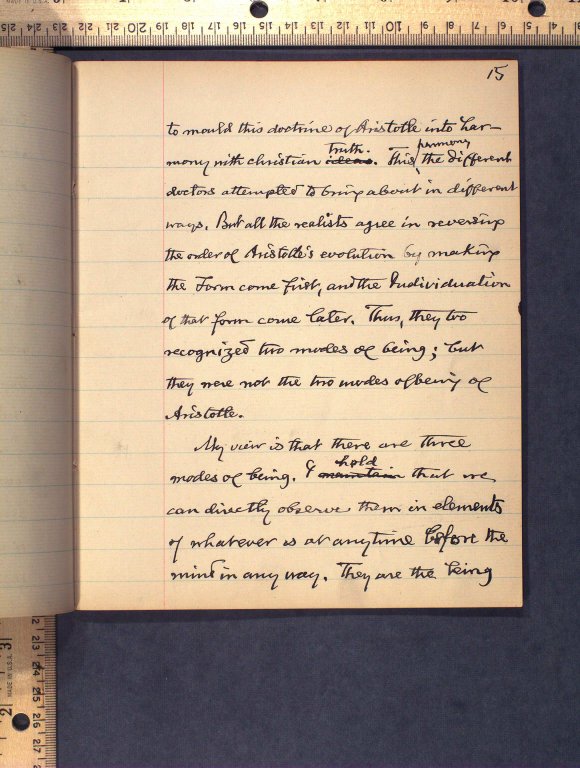 15
to mould this doctrine of Aristotle into har-
truth. harmony
mony with christian ideas. This, the different
doctors attempted to bring about in different
ways. But all the realists agree in reversing
the order of Aristotle's evolution by making
the Form come first, and the Individuation
of that form come later. Thus, they too
recognized two modes of being; but
they were not the two modes of being of
Aristotle.
My view is that there are three
hold
modes of being. I maintain that we
can directly observe them in elements
of whatever is at any time before the
mind in any way. They are the being